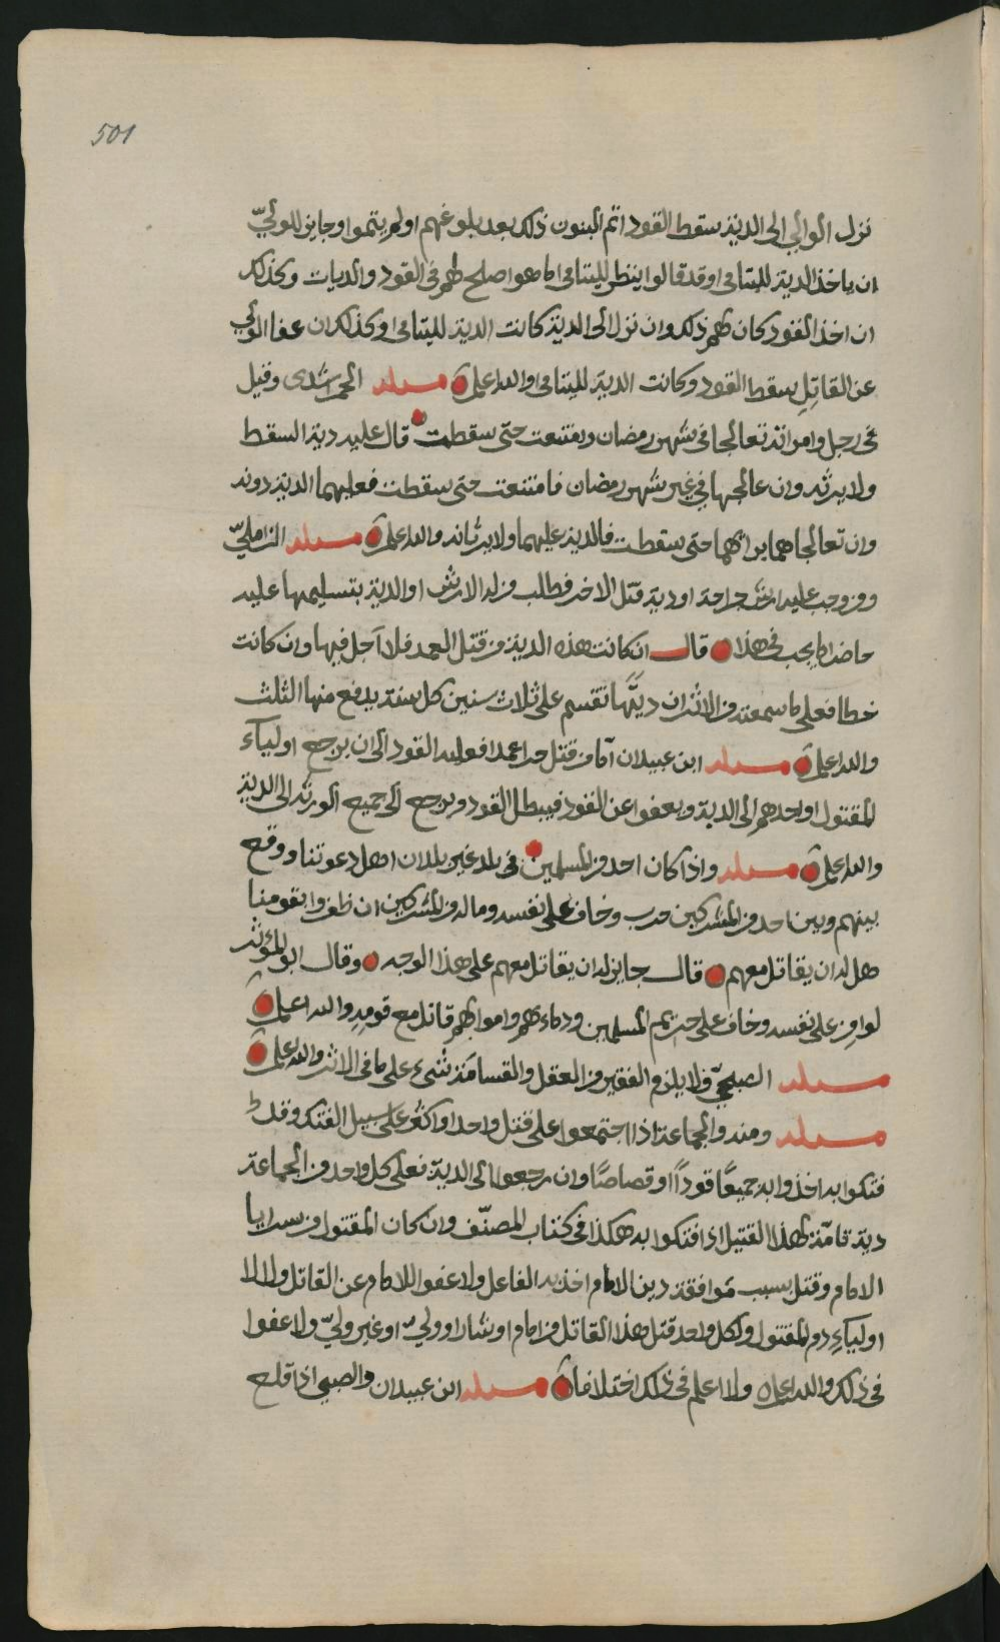 501
نزل الوالي الى الدية سقط القود اتم البنون ذلك بعد بلوغهم او لم يتموا وجايز للوليّ
ان ياخذ الدية لليتامى او قد قالوا ينظر لليتامى ما هو اصلح لهم في القود والديات وكذلك
ان اخذ القود كان لهم ذلك وان نزل الى الدية كانت الدية لليتامى وكذلك ان عفا الولي
عن القاتل سقط القود وكانت الدية لليتامى والله اعلم مسئلة الحمراشدى وقيل
في رجل وامراته تعالجا في شهر رمضان وبمتنعت حتى سقطت قال عليه دية السقط
ولا يرثه وان عالجها في غير شهر رمضان فامتنعت حتى سقطت فعليهما الدية دونه
وان تعالجا هما برائهما حتى سقطت فالدية عليهما ولا يرثانه والله اعلم مسئلة الزامليّ
ومن وجب عليه ارش جراحة او دية قتل الاخر فطلب من له الارش او الدية بتسليمها عليه
حاضرا ما يجب في هذا قال ان كانت هذه الدية من قتل العمد فلا اجل فيها وان كانت
خطا فعلى ما سمعته من الاثر ان ديتها تقسم على ثلاث سنين كل سنة يدفع منها الثلث
والله اعلم مسئلة ابن عبيدان اما من قتل حرا عمدا فعليه القود الى ان يرجع اولياء
المقتول او احدهم الى الدية ويعفوا عن القود فيبطل القود ويرجع الى جميع الورثه الى الدية
والله اعلم مسئلة واذا كان احد من المسلمين في بلد غير بلدان اهل دعوتنا ووقع
بينهم وبين احد من المشركين حرب وخاف على نفسه وماله من المشركين ان ظفروا بقومنا
هل له ان يقاتل معهم قال جايز له ان يقاتل معهم على هذا الوجه وقال ابو المؤثر
لو امن على نفسه وخاف على حريم المسلمين ودماءهم واموالهم قاتل مع قومه والله اعلم
مسئلة الصبحيّ ولا يلزم الفقير من العقل والقسامة شىء على ما في الاثر والله اعلم
مسئلة ومنه والجماعة اذا اجتمعوا على قتل واحد او اكثر على سبيل الفتك وقد
فتكوا به اخذوا به جميعًا قوداً او قصاصًا وان رجعوا الى الدية فعلى كل واحد من الجماعة
دية تامّة لهذا القتيل اذا فتكوا به هكذا في كتاب المصنّف وان كان المقتول من سرايا
الامام وقتل بسبب موافقة دين الامام اخذ به الفاعل ولا عفو اللامام عن القاتل ولا لا
اولياءِ دم المقتول ولكل واحد قتل هذا القاتل من امام او شار او وليّ او غير وليّ ولا عفوا
في ذلك والله اعلم ولا اعلم في ذلك اختلافا مسئلة ابن عبيدان والصبي اذا قلع